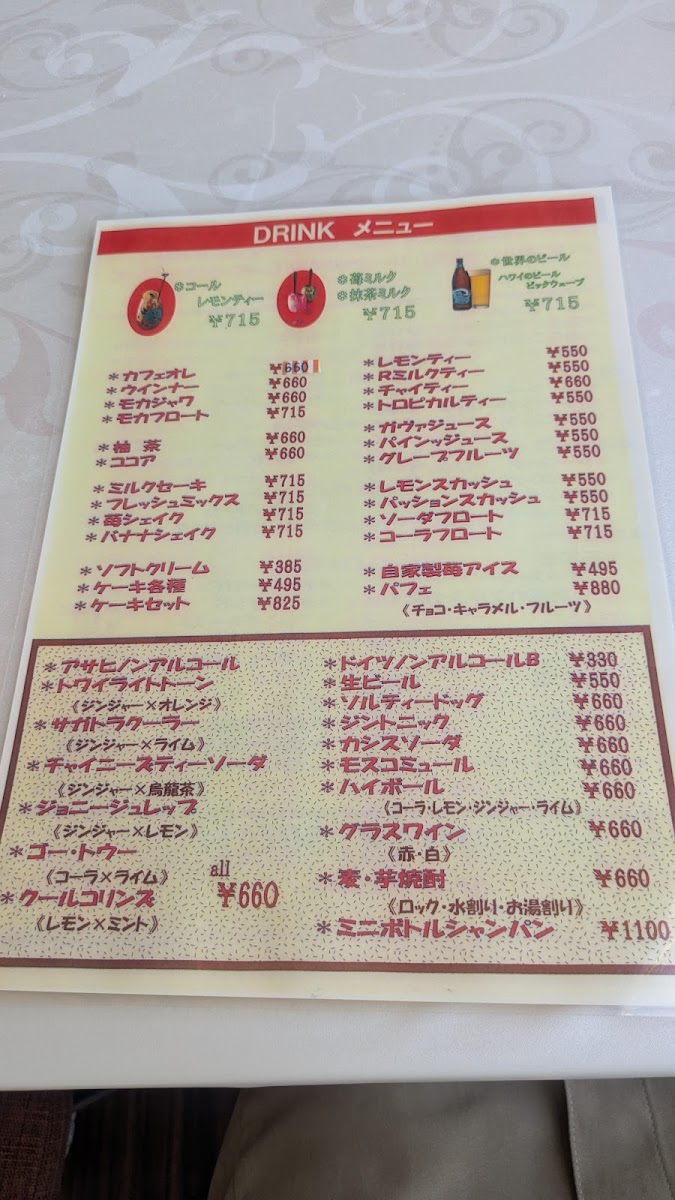 DRINK メニュー
＊コール
レモンティー
￥715
＊苺ミルク
＊抹茶ミルク
￥715
＊世界のビール
ハワイのビール
ビックウェーブ
￥715
＊カフェオレ ￥660
＊ウインナー ￥660
＊モカジャワ ￥660
＊モカフロート ￥715
＊柚茶 ￥660
＊ココア ￥660
＊ミルクセーキ ￥715
＊フレッシュミックス ￥715
＊苺シェイク ￥715
＊バナナシェイク ￥715
＊ソフトクリーム ￥385
＊ケーキ各種 ￥495
＊ケーキセット ￥825
＊レモンティー ￥550
＊Rミルクティー ￥550
＊チャイティー ￥660
＊トロピカルティー ￥550
＊ガヴァジュース ￥550
＊パインッジュース ￥550
＊グレープフルーツ ￥550
＊レモンスカッシュ ￥550
＊パッションスカッシュ ￥550
＊ソーダフロート ￥715
＊コーラフロート ￥715
＊自家製苺アイス ￥495
＊パフェ ￥880
《チョコ・キャラメル・フルーツ》
＊アサヒノンアルコール
＊トワイライトトーン
《ジンジャー×オレンジ》
＊サガトラクーラー
《ジンジャー×ライム》
＊チャイニーズティーソーダ
《ジンジャー×烏龍茶》
＊ジョニージュレップ
《ジンジャー×レモン》
＊ゴー・トウー
《コーラ×ライム》
＊クールコリンズ
《レモン×ミント》
all
￥660
＊ドイツノンアルコールB ￥330
＊生ビール ￥550
＊ソルティードッグ ￥660
＊ジントニック ￥660
＊カシスソーダ ￥660
＊モスコミュール ￥660
＊ハイボール ￥660
《コーラ・レモン・ジンジャー・ライム》
＊グラスワイン ￥660
《赤・白》
＊麦・芋焼酎 ￥660
《ロック・水割り・お湯割り》
＊ミニボトルシャンパン ￥1100